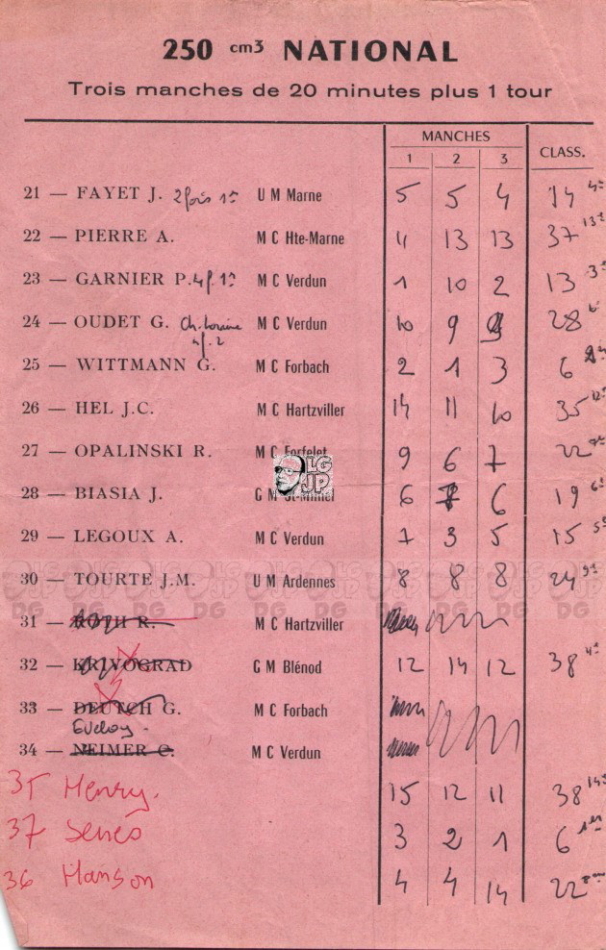 250 cm3 NATIONAL
Trois manches de 20 minutes plus 1 tour
MANCHES
1 2 3 CLASS.
21 — FAYET J. 2 fois 1er U M Marne 5 5 4 14 4e
22 — PIERRE A. M C Hte-Marne 11 13 13 37 13e
23 — GARNIER P. 4 f. 1er M C Verdun 1 10 2 13 3e
24 — OUDET G. Ch. Lorraine M C Verdun 10 9 9 28
4 f. 2
25 — WITTMANN G. M C Forbach 2 1 3 6
26 — HEL J.C. M C Hartzviller 14 11 10 35
27 — OPALINSKI R. M C Forfelet 9 6 7 22
28 — BIASIA J. G M St-Mihiel 6 7 6 19 6e
29 — LEGOUX A. M C Verdun 7 3 5 15 5e
30 — TOURTE J.M. U M Ardennes 8 8 8 24 9e
31 — ROTH R. M C Hartzviller
32 — KRIVOGRAD G M Blénod 12 14 12 38
33 — DEUTCH G. M C Forbach
34 — NEIMER C. M C Verdun
35 Henry. 15 12 11 38 14e
37 Senes 3 2 1 6 1er
36 Hanson 4 4 14 22
LG
JP
DG